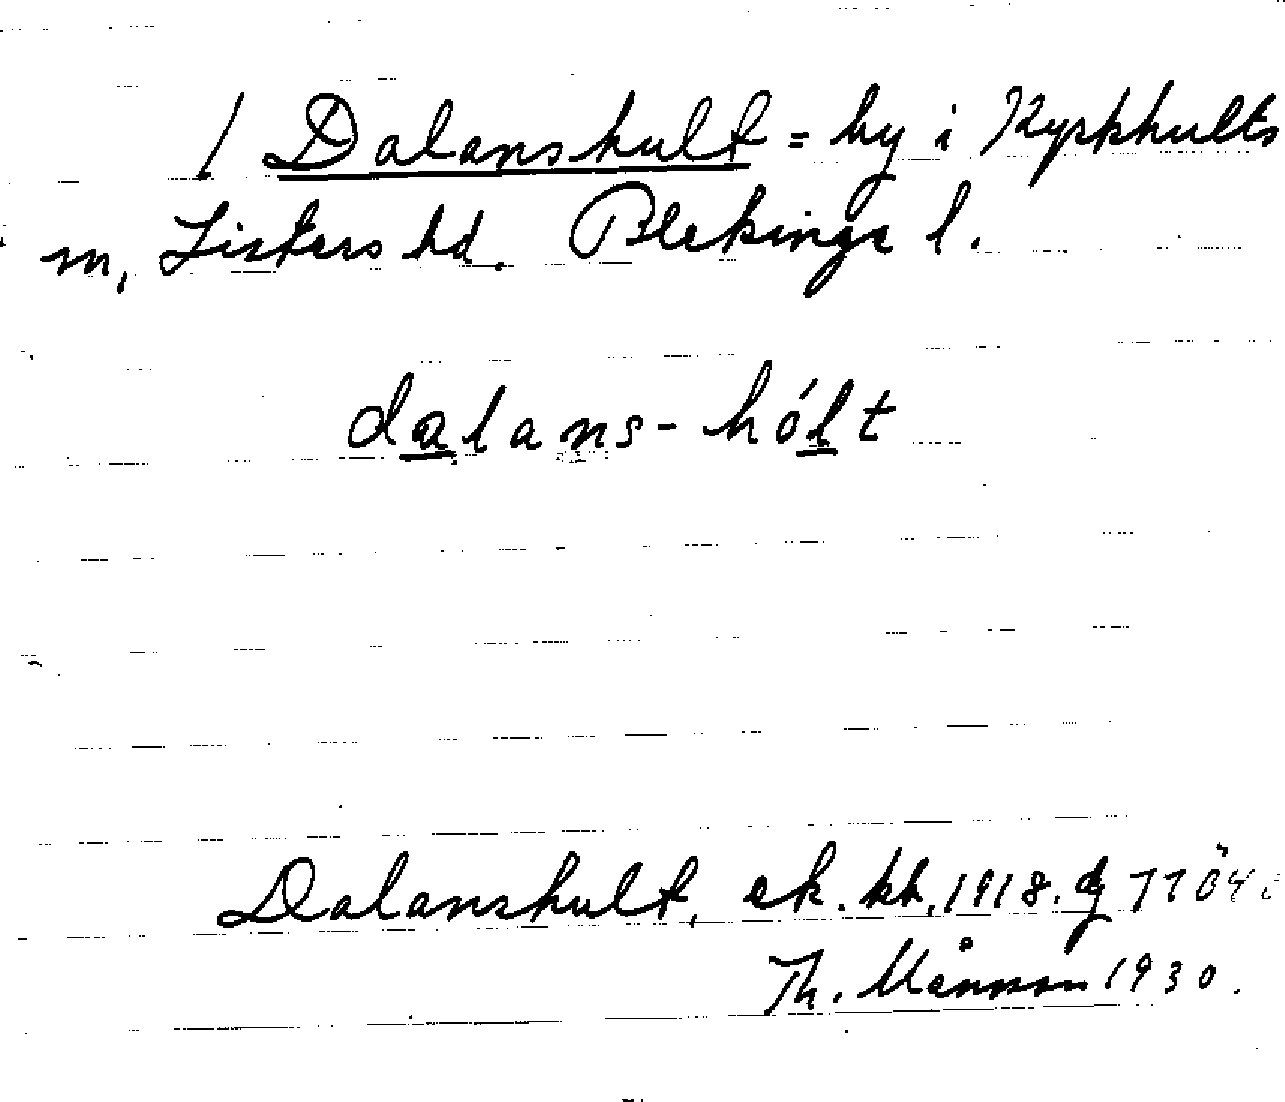 / Dalanshult = by i Kyrkhults
m, Listers hd. Blekinge l.
dalans-hólt
Dalanshult, ek. kb. 1918.
Th. Månsson 1930.